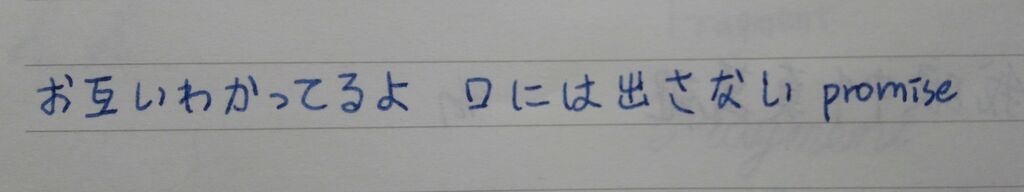 お互いわかってるよ 口には出さない promise